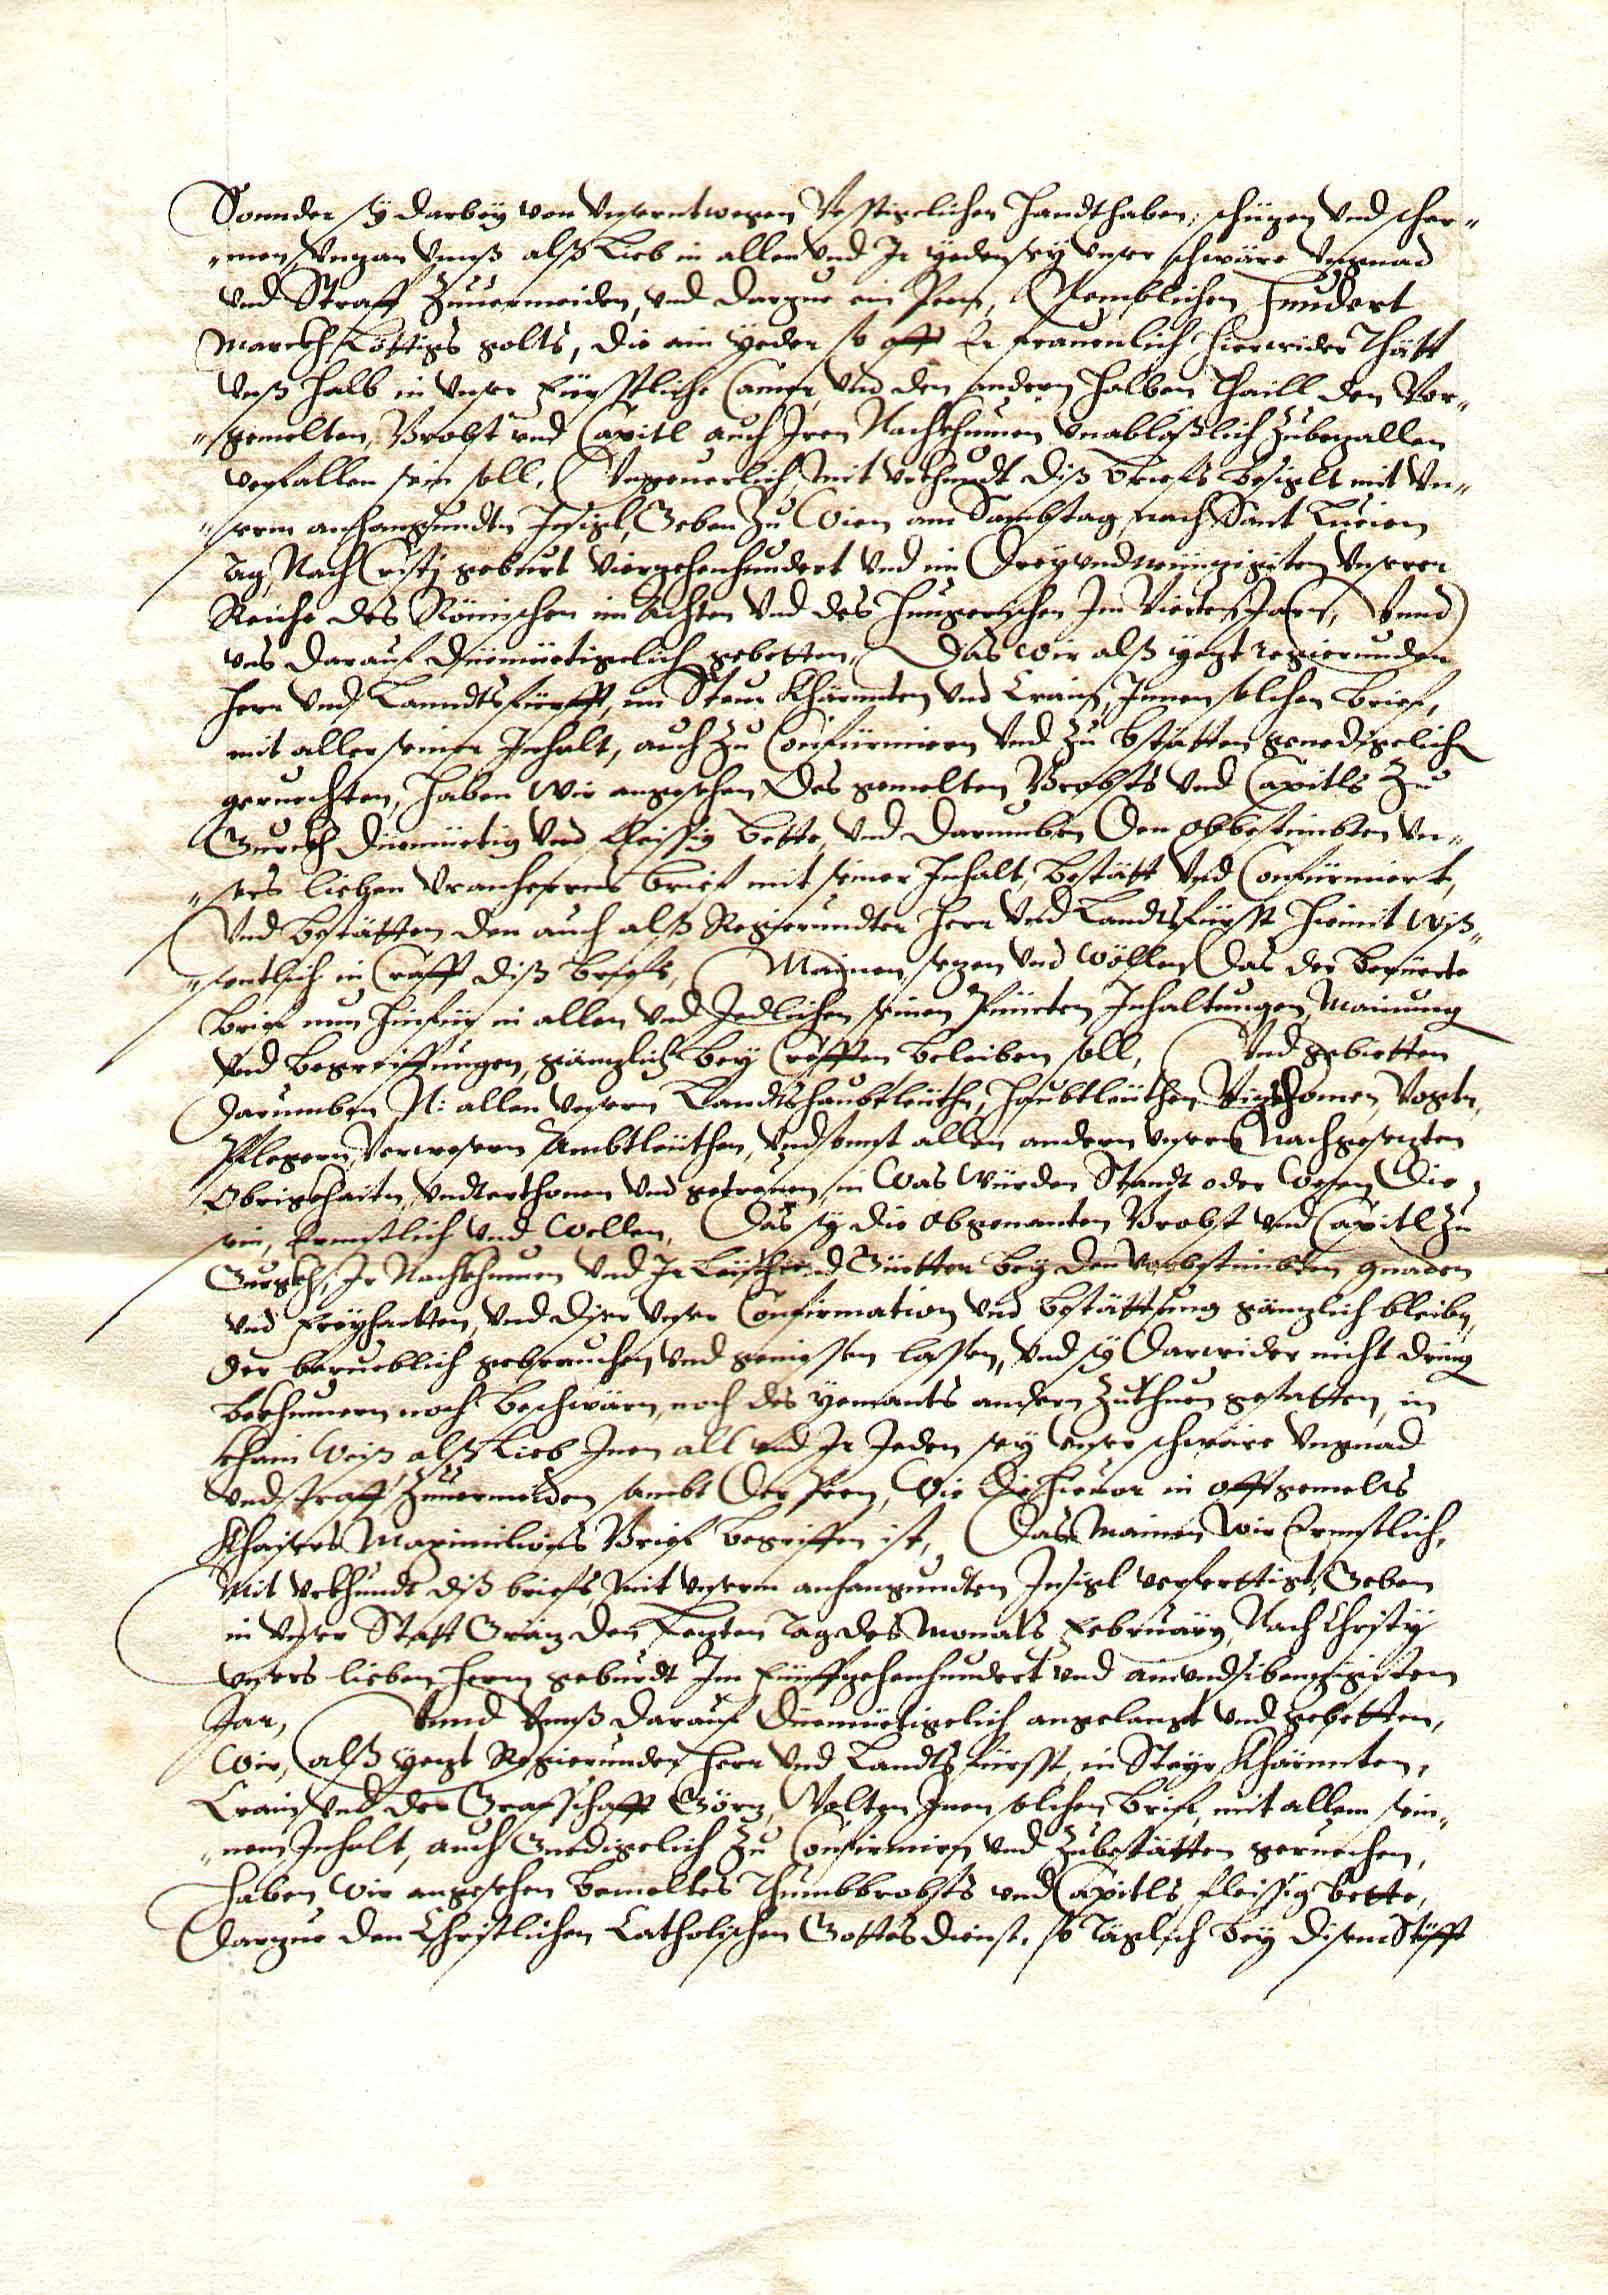 Sonnder sy darbey von unserntwegen Vestigelichen handthaben, schüzen und scher„
„men, lieb in allen und Ir yeden sey unser schwäre Ungnad
und Straff zuuermeiden, und darzue ein Peen, Nemblichen hundert
Marckh Löttigs golts, die ain yeder so offt Er freuenlich hierwider Thätt
Unß halb in unser Fürstliche Camer, und den andern halben Thaill den Vor„
„gemelten, Brobst und Capitl auch Iren Nachkhumen unabläßlich zubezallen
verfallen sein soll, Ungeuerlich mit urkhundt diß briefs besiglt mit Un„
„serm anhangundtn Insigl, Geben zu Wien am Sambstag nach Sant Lucien
tag, Nach Cristj geburt Vierzehenhundert und im Dreyundneünzigisten Unserer
Reiche des Römischen im Achten und des hungerischen Im Vierten Jarn, Unnd
uns darauf diemüetigelich gebetten, Das wir alß yezt regierunder
herr und Lanndtsfürst, in Steur Khärnnten und Crain, Innen solchen brief,
mit aller seiner Inhalt, auch zu Confürmiern und zu bstätten genedigelich
geruechten, haben wir angesehen des gemelten Brobsts und Capitls zu
Gurckh diemüetig und fleissig bette, und darumben Den obbestimbten un„
„sers lieben Uranherrns brief mit seiner Inhalt, bestätt und Confürmiert,
Und bestätten den auch alß Regierundter herr und Landtsfürst hiemit wiß„
„sentlich in Crafft diß briefs, Mainen, sezen und wöllen, Das der berüerte
brief nun hinfür in allen und Jedlichen seinen Puncten Inhaltungen, Mainung
und begreiffungen, gänzlich bey Crefften beleiben soll, Und gebietten
darumben N: allen unsern Landtshaubtleüthn, haubtleüthen Vizthomen, Vogtn,
Pflegern, Verwesern Ambtleüthen, und sonst allen andern unsern Nachgesezten
Obrigkhaitn, Undterthonen und getreuen, in was würden Standt oder wesen die
sein, Ernnstlich und wellen, Das sy die obgenanten Brobst und Capitl zu
Gurgkh, Ir Nachkhumen und Ir Leüth und Güetter bey den vorbestimbten gnaden
und freyhaitten, und diser unser Confirmation und bestättung gänzlich bleibn,
Der berueblich gebrauchen und geniessen lassen, und sy darwider nicht dring
bekhumern noch beschwärn, noch des yemants andern zuthuen gestatten, in
khain weiß, alß Lieb Inen all und Ir Jeden sey unser schwäre Ungnad
und straff zuuermeiden sambt der Peen, wie die hieuor in offtgemelts
Khaisers Maximilions Brief begriffen ist, Das Mainen wir Ernnstlich,
Mit urkhundt diß briefs, mit unserm anhangundten Insigl verferttigt, Geben
in unser Statt Gräz den Tag des Monats February, Nach Christy
unsers lieben herrn geburdt Im Fünffzehenhundert und ainundsibenzigisten
Jar, Unnd Unnß darauf diemüetigelich angelangt und gebetten,
Wir, alß yezt Regierunder herr und Landts fürst, in Steyr, Khärnnten,
Crain und der Grafschafft Görz, Wolten Inen solchen brief, mit allem sein„
„nem Inhalt, auch Gnedigelich zu Confirmirn und zubestätten geruechen,
haben wir angesehen bemeltes Thumbbrobsts und Capitls fleissig bette,
Darzue den Christlichen Catholischen Gottes dienst, so Täglich bey disem Stüfft